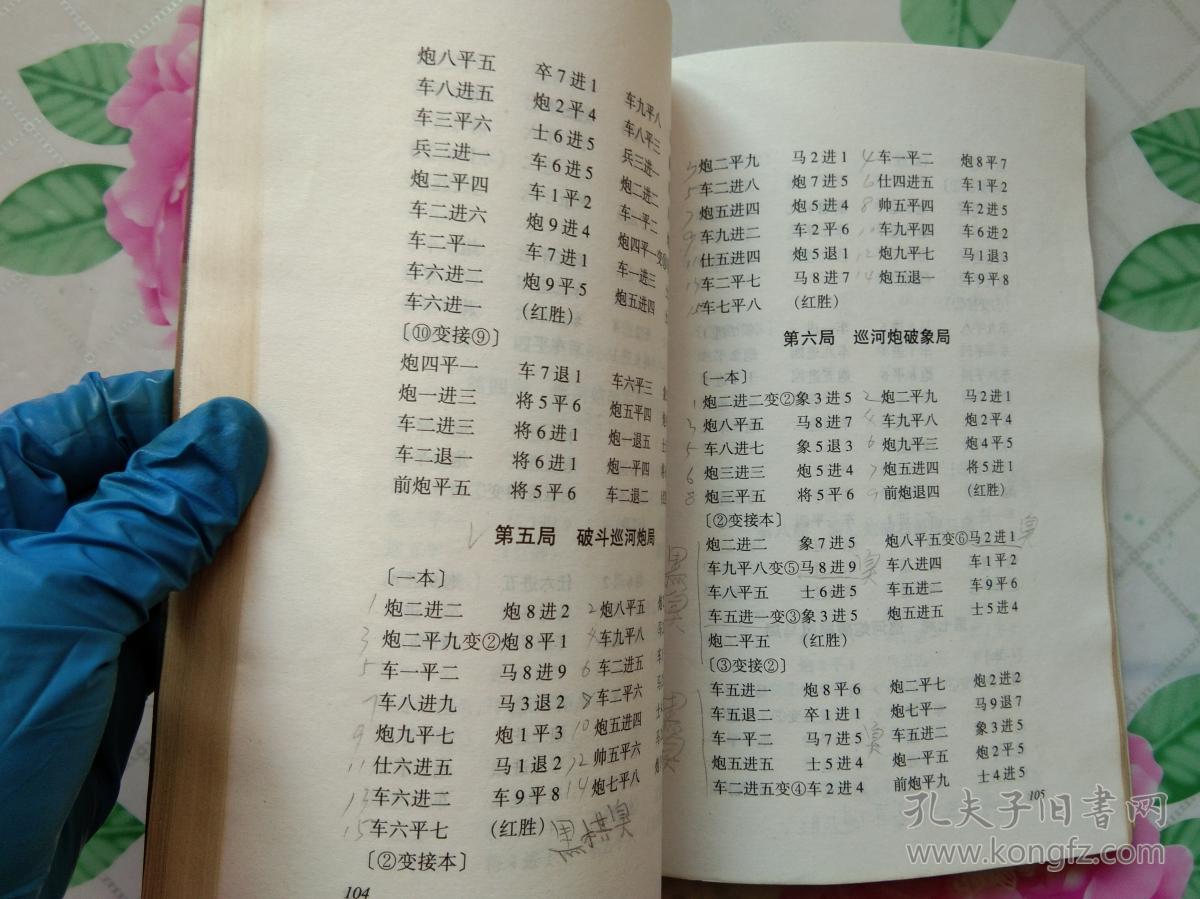 炮八平五 卒7进1 车九平八
车八进五 炮2平4 车八平三
车三平六 士6进5 兵三进一
兵三进一 车6进5 炮二进二
炮二平四 车1平2 车一平二
车二进六 炮9进4 炮四平一
车二平一 车7进1 车一进三
车六进二 炮9平5 炮五进四
车六进一 (红胜)
〔⑩变接⑨〕
炮四平一 车7退1 车六平三
炮一进三 将5平6 炮五平四
车二进三 将6进1 炮一退五
车二退一 将6进1 炮一平四
前炮平五 将5平6 车二退二
第五局 破斗巡河炮局
〔一本〕
1 炮二进二 炮8进2 2 炮八平五
3 炮二平九变②炮8平1 4 车九平八
5 车一平二 马8进9 6 车二进五
7 车八进九 马3退2 8 车二平六
9 炮九平七 炮1平3 10 炮五进四
11 仕六进五 马1退2 12 帅五平六
13 车六进二 车9平8 14 炮七平八
15 车六平七 (红胜) 黑棋臭
〔②变接本〕
104
3 炮二平九 马2进1 4 车一平二 炮8平7
5 车二进八 炮7进5 6 仕四进五 车1平2
7 炮五进四 炮5进4 8 帅五平四 车2进5
9 车九进二 车2平6 车九平四 车6进2
11 仕五进四 炮5退1 12 炮九平七 马1退3
13 车二平七 马8进7 14 炮五退一 车9平8
15 车七平八 (红胜)
第六局 巡河炮破象局
〔一本〕
1 炮二进二变②象3进5 2 炮二平九 马2进1
3 炮八平五 马8进7 4 车九平八 炮2平4
5 车八进七 象5退3 6 炮九平三 炮4平5
6 炮三进三 炮5进4 7 炮五进四 将5进1
8 炮三平五 将5平6 9 前炮退四 (红胜)
〔②变接本〕
炮二进二 象7进5 炮八平五变⑥马2进1 臭
车九平八变⑤马8进9 臭 车八进四 车1平2
车八平五 士6进5 车五进二 车9平6
车五进一变③象3进5 炮五进五 士5进4
炮二平五 (红胜)
〔③变接②〕
车五进一 炮8平6 炮二平七 炮2进2
车五退二 卒1进1 炮七平一 马9退7
车一平二 马7进5 臭 车五进二 象3进5
炮五进五 士5进4 炮一平五 炮2平5
车二进五变④车2进4 前炮平九 士4进5
黑臭
105
孔夫子旧书网
www.kongfz.com